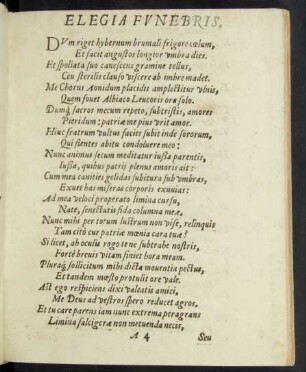 ELEGIA FVNEBRIS.
DVm riget hybernum brumali frigore cœlum,
Et facet angustor longior vmbra dies.
Et spoliata suo canescens gramine tellus,
Ceu sterilis clauso viscere ab imbre madet.
Me Chorus Aonidum placidis amplectitur vlnis,
Quem fouet Albiaco Leucoris ora solo.
Dumq́ sacros mecum repeto, subtristis, amores
Pieridum: patriæ me pius vrit amor.
Huic fratrum vultus facies subit inde sororum,
Qui flentes abitu condoluere meo:
Nunc animus secum meditatur iussa parentis,
Iussa, quibus patrij plenus amoris ait:
Cum mea canities gelidas subitura sub vmbras,
Exuet has miseras corporis exuuias:
Ad mea veloci properato limina cursu,
Nate, senectutis fida columna meæ,
Nunc mihi per totum lustrum non vise, relinquis
Tam citò cur patriæ mœnia cara tuæ?
Si licet, ah oculis rogo te ne subtrahe nostris,
Fortè breuis vitam finiet hora meam.
Pluraq́ sollicitum mihi dicta mouentia pectus,
Et tandem mæsto protulit ore vale.
Ast ego respiciens dixi valeatis amici,
Me Deus ad vestros spero reducet agros.
Et tu care parens iam nunc extrema peragrans
Limina falcigeræ non metuenda necis,
A 4 Seu